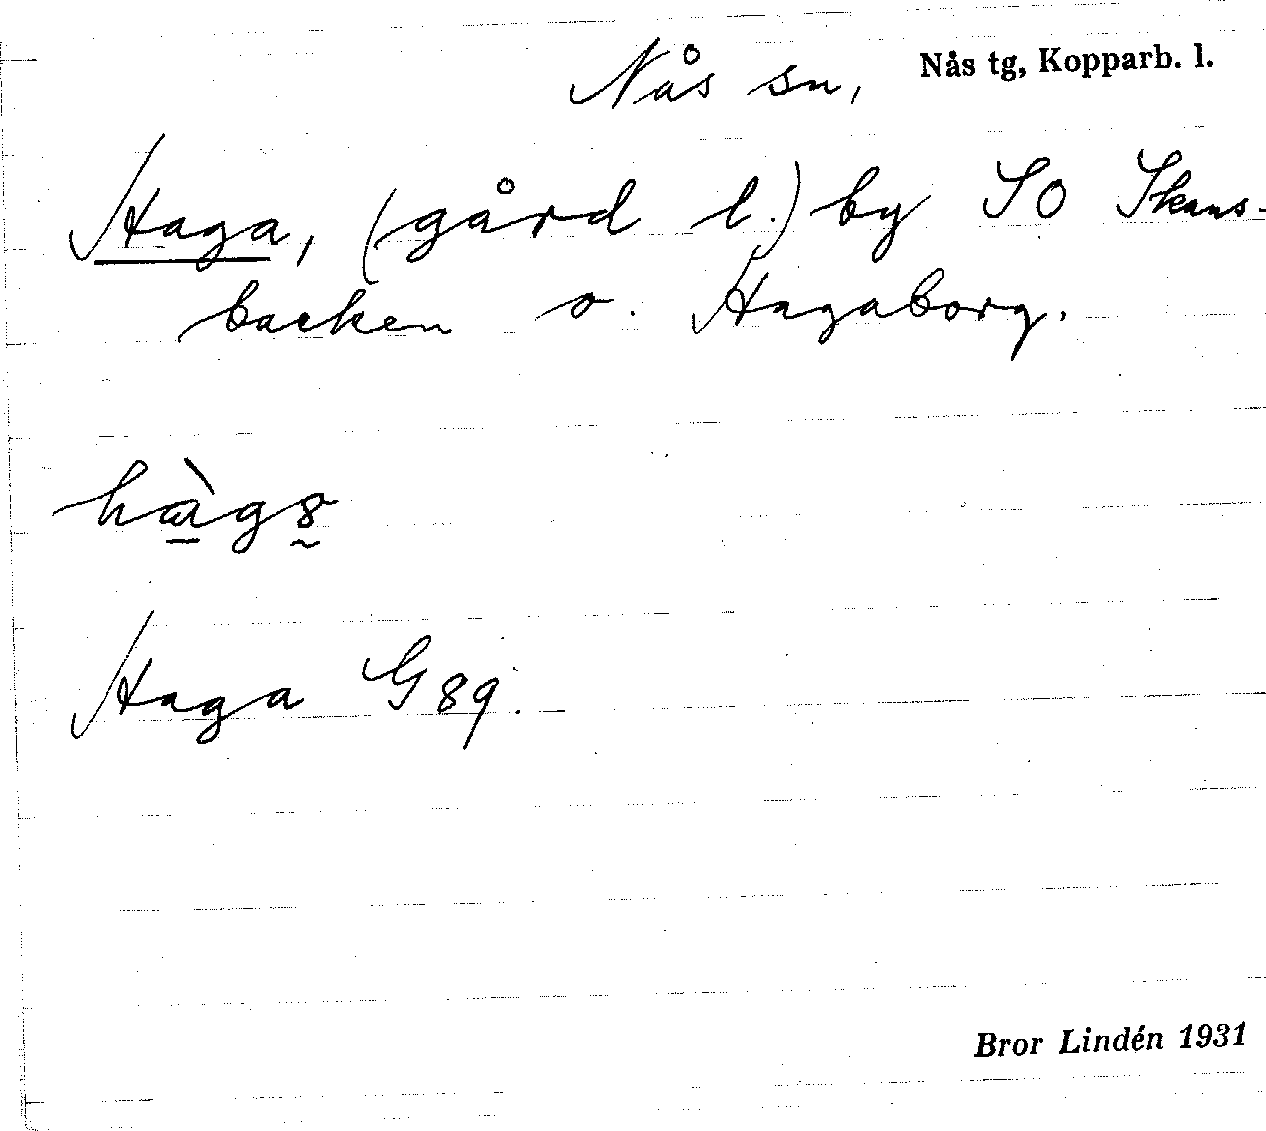 Nås sn, Nås tg, Kopparb. l.
Haga, (gård l.) by SO Skans-
backen o. Hagaborg.
Haga G 89.
Bror Lindén 1931